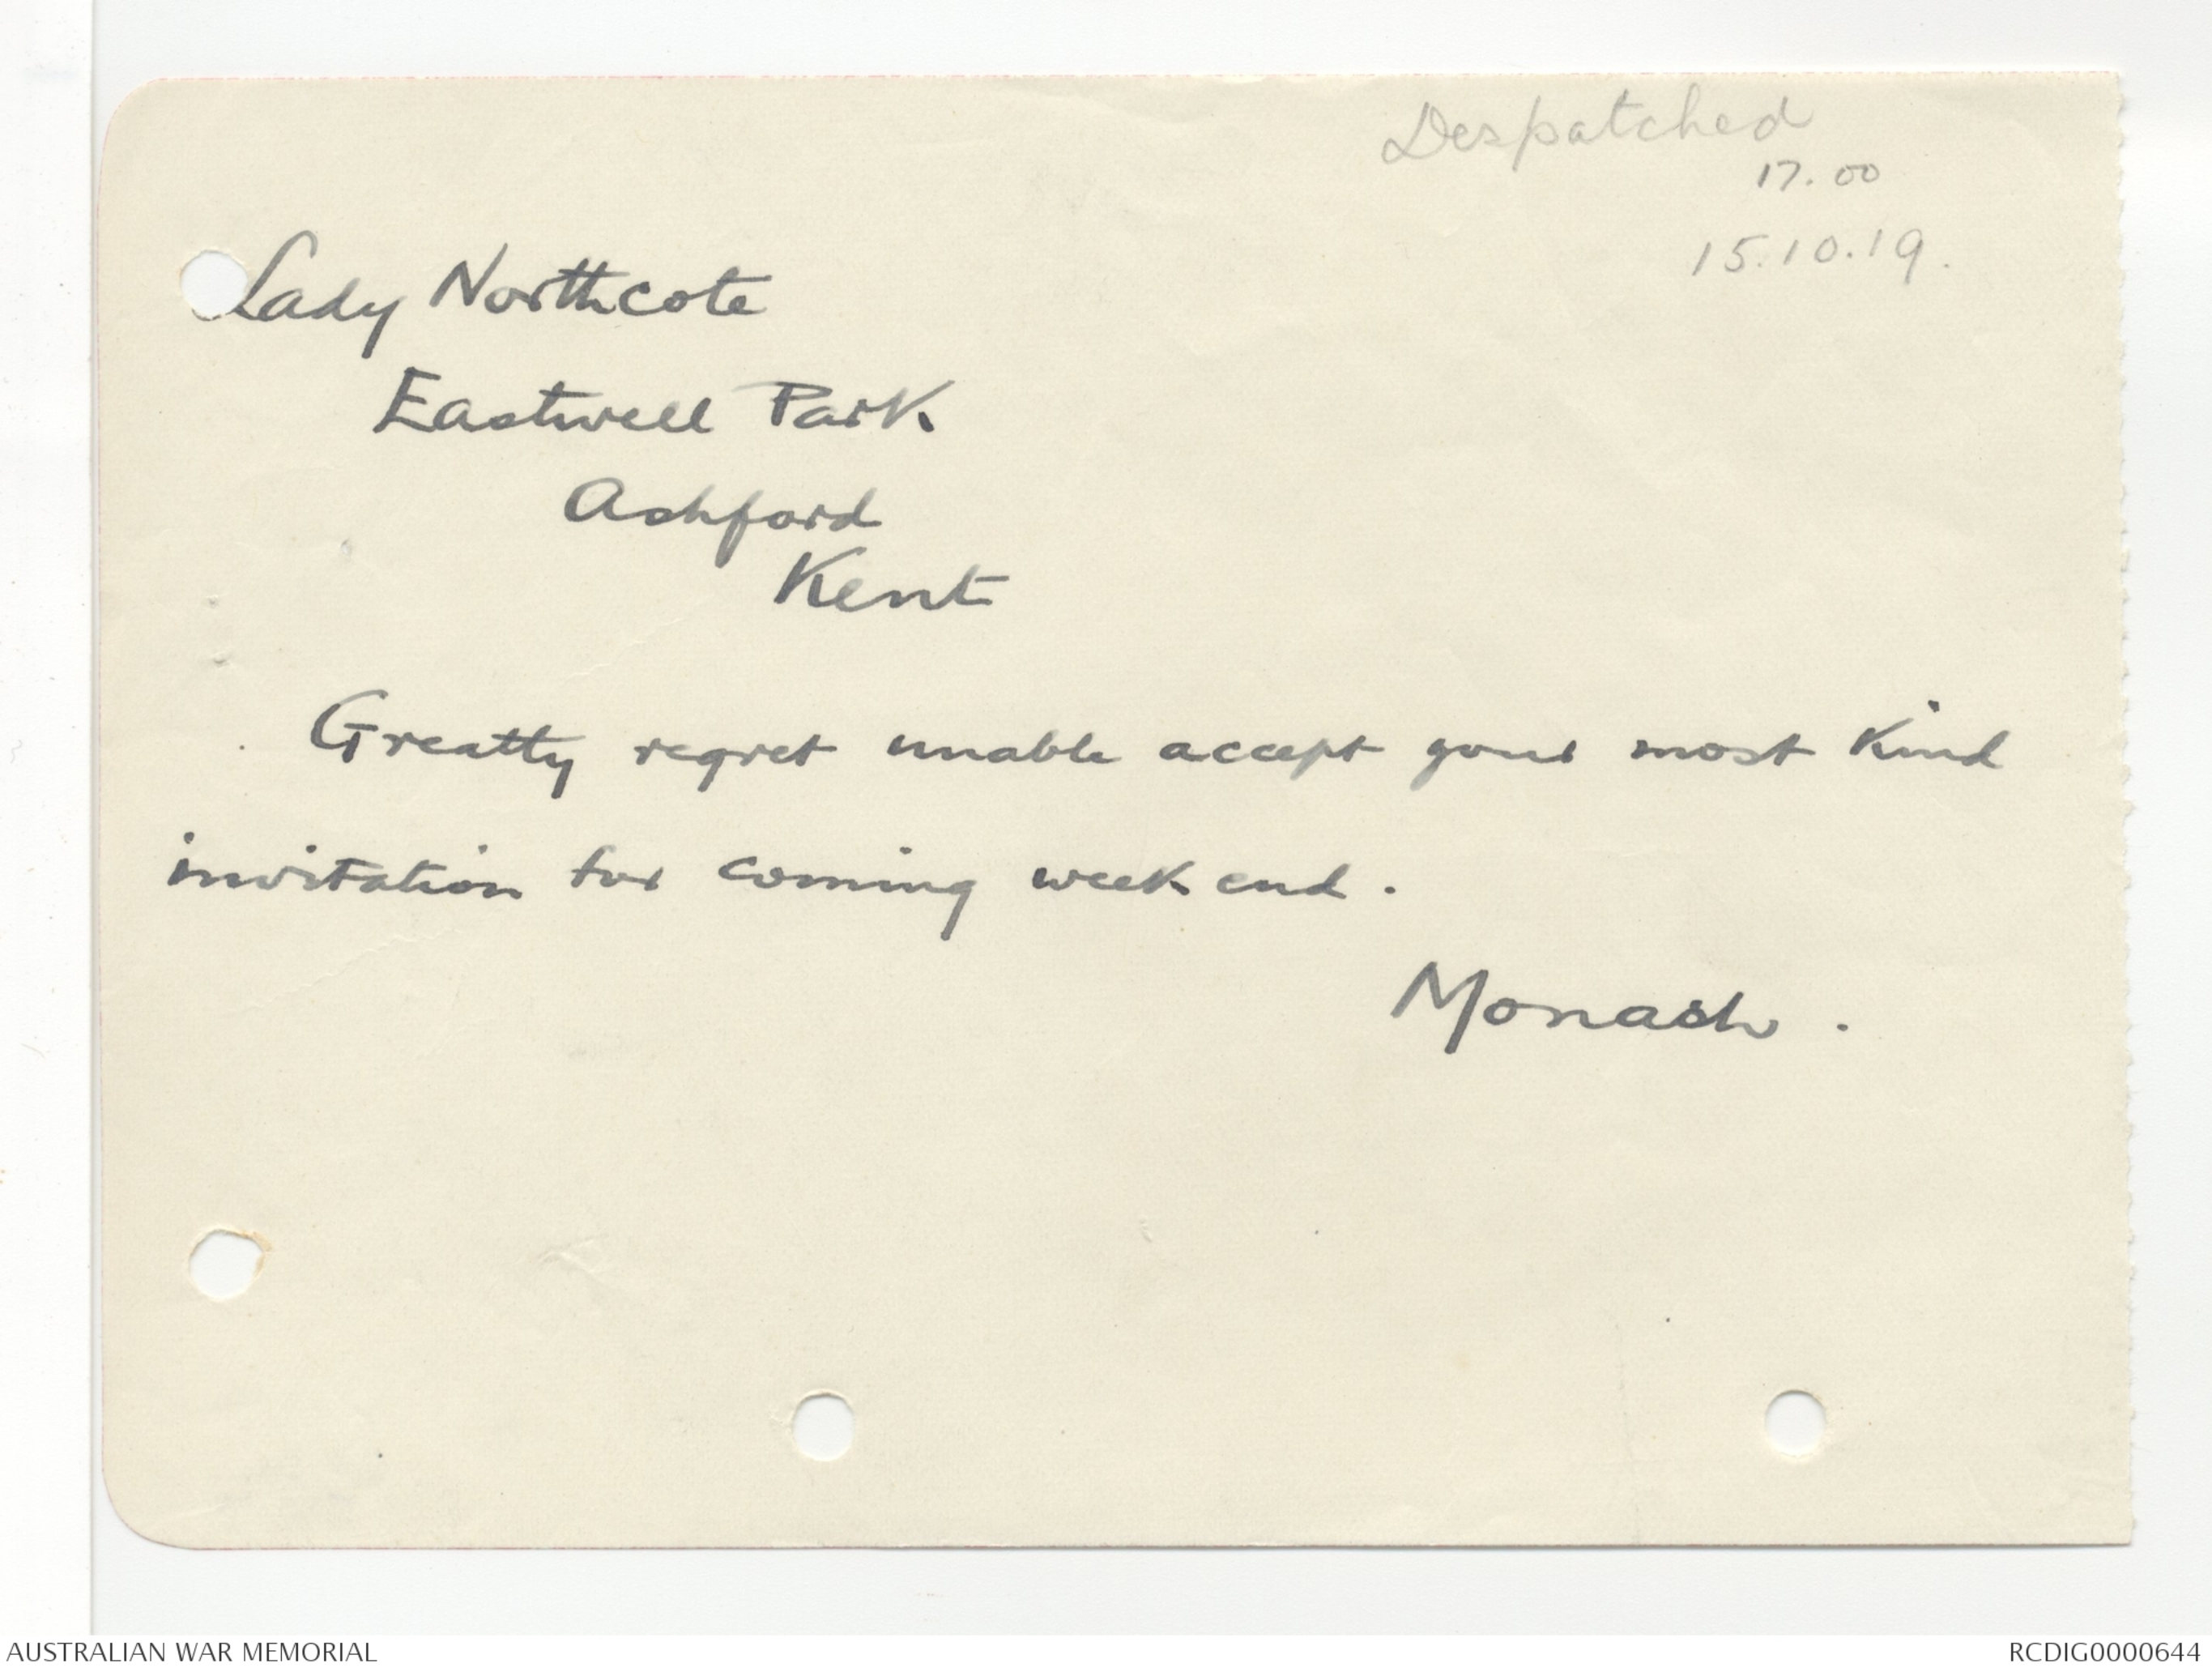 Despatched
17.00
15.10.19.
Lady Northcote
Eastwell Park
Ashford
Kent
Greatly regret unable accept your most kind
invitation for coming week end.
Monash.
AUSTRALIAN WAR MEMORIAL
RCDIG0000644